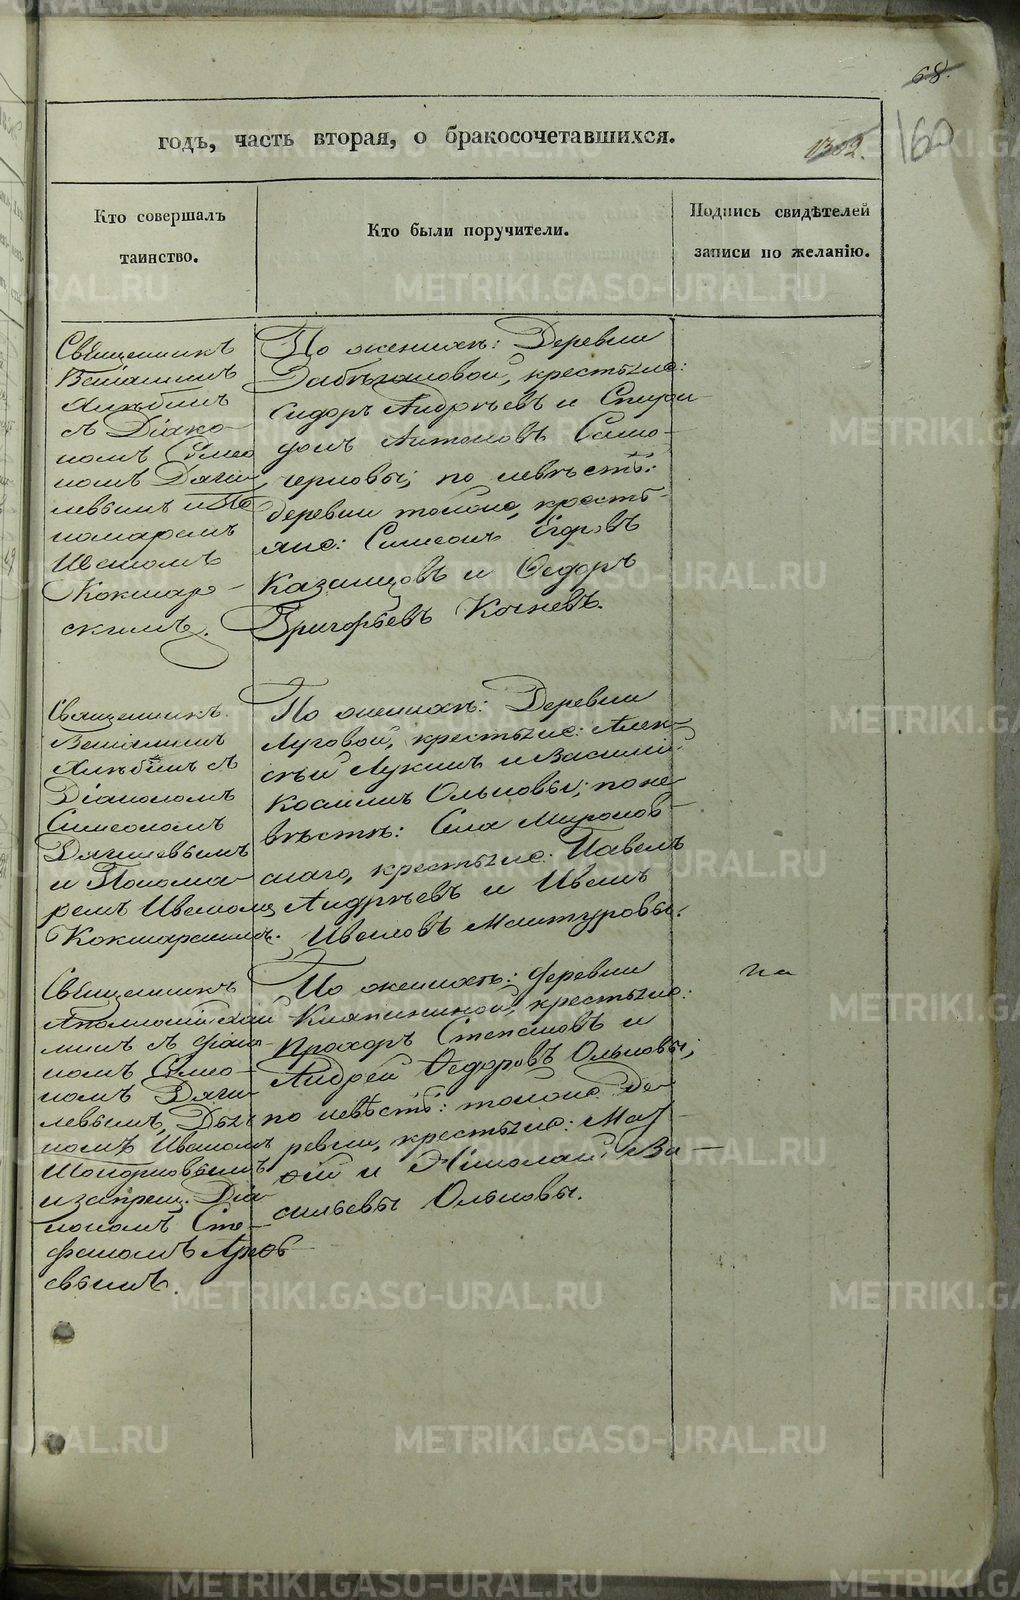 68.
160
годъ, часть вторая, о бракосочетавшихся.
1302.
Кто совершалъ
таинство.
Кто были поручители.
Подпись свидѣтелей
записи по желанію.
Священникъ
Веніаминъ
Хлѣбинъ
съ Діако-
номъ Симео
номъ Дяги
левымъ и По
номаремъ
Иваномъ
Кокшар-
скимъ.
По женихѣ: Деревни
крестьяне:
Сидоръ Андрѣевъ и Спири
донъ Антоновъ Само-
черновы; по невѣстѣ:
деревни тойже, кресть-
яне: Симеонъ Егоровъ
Казанцовъ и Ѳедоръ
Григорьевъ Кочневъ.
Священникъ
Веніаминъ
Хлѣбинъ съ
Діакономъ
Симеономъ
Дягилевымъ
и Понома-
ремъ Иваномъ
Кокшарскимъ.
По женихѣ: Деревни
Луговой, крестьяне: Алек-
сѣй Лукинъ и Василій
Косминъ Ольковы; по не
вѣстѣ: Села Миронов-
скаго, крестьяне: Павелъ
Андрѣевъ и Иванъ
Ивановъ Мантуровы.
Священникъ
съ
номъ Симео-
номъ Дяги-
левымъ, Дья
номъ Иваномъ
и запрещ. Діа-
кономъ Сте-
фаномъ
свымъ.
По женихѣ: деревни
крестьяне:
Прохоръ Степановъ и
Андрей Ѳедоровъ Ольковы;
по невѣстѣ: тойже де-
ревни, крестьяне: Мат
ѳій и Николай Ва-
сильевы Ольковы.
на
METRIKI.GASO-URAL.RU